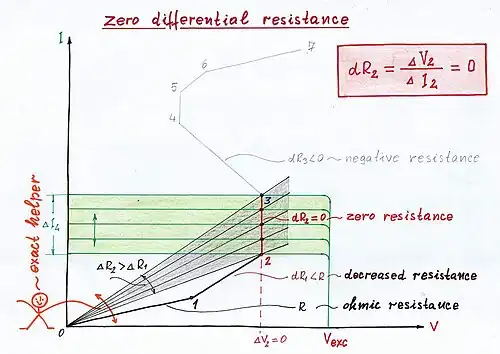 Zero differential resistance
I
7
6
5
4
dR₂ = ΔV₂ / ΔI₂ = 0
dR₃<0 ~ negative resistance
3
ΔI₁
dR₂=0 ~ zero resistance
~ exact helper
2
ΔR₂>ΔR₁
dR₁<R ~ decreased resistance
1
R ~ ohmic resistance
0
ΔV₂=0
Vexc
V